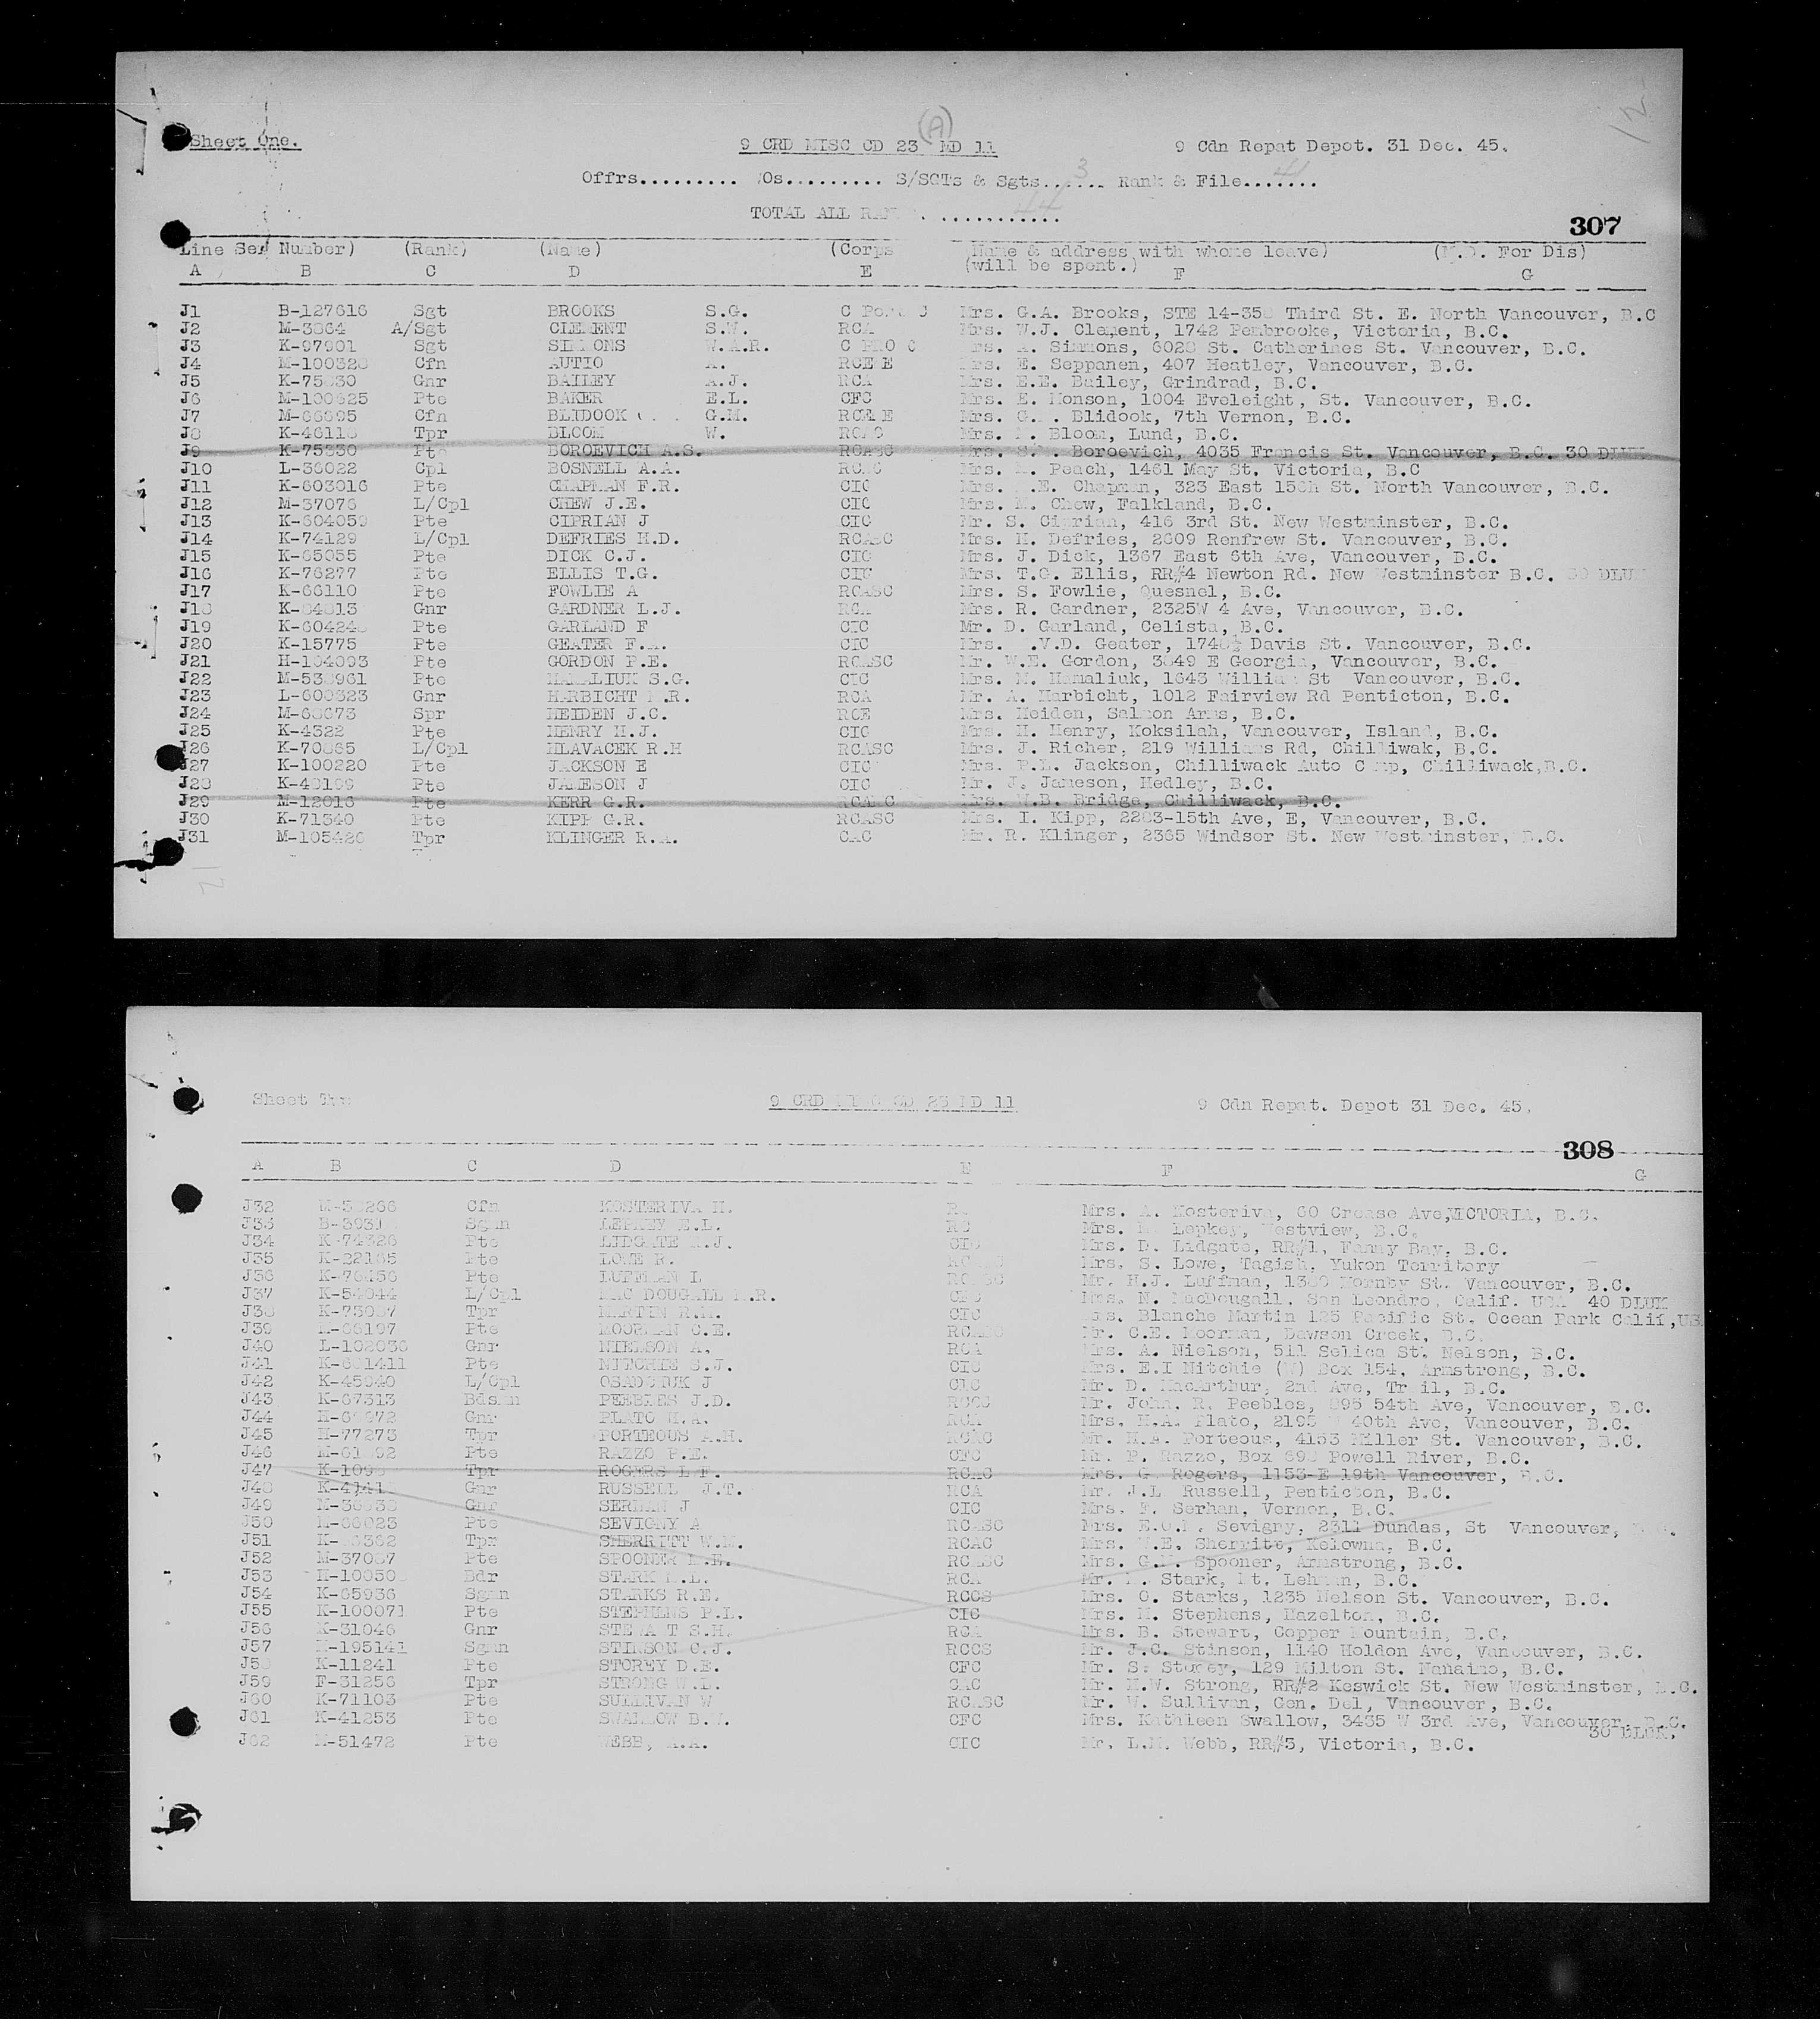 Sheet One. 9 CRD MISC CD 23 (A) MD 11 9 Cdn Repat Depot. 31 Dec. 45.
Offrs.......... WOs......... S/SGTs & Sgts...3... Rank & File...41....
TOTAL ALL RANKS. ....44........
307
Line Ser Number) (Rank) (Name) (Corps Name & address with whome leave) (M.D. For Dis)
(will be spent.)
A B C D E F G
J1 B-127616 Sgt BROOKS S.G. C Mrs. G.A. Brooks, STE Third St. E. North Vancouver, B.C
J2 M-3864 A/Sgt CLEMENT S.W. RCA Mrs. W.J. Clement, 1742 Penbrooke, Victoria, B.C.
J3 K-97901 Sgt SIMMONS W.A.R. C PRO C Mrs. Simmons, 6028 St. Catherines St. Vancouver, B.C.
J4 M-100328 Cfn AUTIO A. RCEME Mrs. E. Seppanen, 407 Heatley, Vancouver, B.C.
J5 Gnr BAILEY A.J. RCA Mrs. E.E. Bailey, Grindrad, B.C.
J6 M-100625 Pte BAKER E.L. CFC Mrs. E. Monson, 1004 Eveleight, St. Vancouver, B.C.
J7 M-66695 Cfn BLIDOOK G.M. RCEME Mrs. Blidook, 7th Vernon, B.C.
J8 Tpr BLOOM W. RCAC Mrs. Bloom, Lund, B.C.
J9 Pte BOROEVICH A.S. RCASC Mrs. Boroevich, 4035 Francis St. Vancouver, B.C. 30 DLUK
J10 L-36022 Cpl BOSNELL A.A. Mrs. Peach, 1461 May St. Victoria, B.C
J11 K-603016 Pte CHAPMAN F.R. CIC Mrs. Chapman, 323 East 15th St. North Vancouver, B.C.
J12 M-37076 L/Cpl CHEW J.E. CIC Mrs. M. Chew, Falkland, B.C.
J13 K-604059 Pte CIPRIAN J CIC Mr. S. Ciprian, 416 3rd St. New Westminster, B.C.
J14 K-74129 L/Cpl DEFRIES H.D. RCASC Mrs. M. Defries, 2609 Renfrew St. Vancouver, B.C.
J15 K-65055 Pte DICK C.J. CIC Mrs. J. Dick, 1367 East 6th Ave, Vancouver, B.C.
J16 K-76277 Pte ELLIS T.G. CIC Mrs. T.G. Ellis, RR#4 Newton Rd. New Westminster B.C. 30 DLUK
J17 K-66110 Pte FOWLIE A RCASC Mrs. S. Fowlie, Quesnel, B.C.
J18 Gnr GARDNER L.J. RCA Mrs. R. Gardner, 2325W 4 Ave, Vancouver, B.C.
J19 Pte GARLAND F CIC Mr. D. Garland, Celista, B.C.
J20 K-15775 Pte GEATER CIC Mrs. Geater, Davis St. Vancouver, B.C.
J21 H-104093 Pte GORDON P.E. RCASC Mr. W.E. Gordon, 3649 E Georgia, Vancouver, B.C.
J22 Pte HAMALIUK S.G. CIC Mrs. M. Hamaliuk, 1643 William St Vancouver, B.C.
J23 L-600323 Gnr HARBICHT RCA Mr. A. Harbicht, 1012 Fairview Rd Penticton, B.C.
J24 Spr HEIDEN J.C. RCE Mrs. Heiden, Salmon Arms, B.C.
J25 K-4322 Pte HENRY H.J. CIC Mrs. H. Henry, Koksilah, Vancouver, Island, B.C.
J26 K-70865 L/Cpl HLAVACEK R.H RCASC Mrs. J. Richer, 219 Williams Rd, Chilliwak, B.C.
J27 K-100220 Pte JACKSON E CIC Mrs. Jackson, Chilliwack Auto Camp, Chilliwack,B.C.
J28 Pte JAMESON J CIC Mr. J. Jameson, Hedley, B.C.
J29 M-12016 Pte KERR G.R. RCAMC Mrs. Bridge, Chilliwack, B.C.
J30 K-71340 Pte KIPP G.R. RCASC Mrs. I. Kipp, 2283-15th Ave, E, Vancouver, B.C.
J31 M-105426 Tpr KLINGER R.A. CAC Mr. R. Klinger, 2365 Windsor St. New Westminster, B.C.
Sheet 9 CRD MISC CD 23 MD 11 9 Cdn Repat. Depot 31 Dec. 45.
308
A B C D E F G
J32 Cfn KOSTERIVA H. Mrs. A. Kosteriva, 60 Crease Ave,VICTORIA, B.C.
J33 Sgmn LEPKEY E.L. Mrs. Lepkey, Westview, B.C.
J34 K-74326 Pte LIDGATE A.J. CIC Mrs. D. Lidgate, RR#1, Fanny Bay, B.C.
J35 Pte LOWE R. Mrs. S. Lowe, Tagish, Yukon Territory
J36 K-76456 Pte LUFFMAN L RCASC Mr. H.J. Luffman, Hornby St. Vancouver, B.C.
J37 K-54044 L/Cpl MAC DOUGALL Mrs. N. MacDougall, San Leondro, Calif. USA 40 DLUK
J38 Tpr MARTIN R.M. CIC Mrs. Blanche Martin 125 Pacific St. Ocean Park Calif,US
J39 Pte MOORMAN C.E. RCASC Mr. C.E. Moorman, Dawson Creek, B.C.
J40 L-102036 Gnr NIELSON A. RCA Mrs. A. Nielson, 511 Selica St. Nelson, B.C.
J41 K-601411 Pte NITCHIE S.J. CIC Mrs. E.I Nitchie (W) Box 154, Armstrong, B.C.
J42 K-45040 L/Cpl J CIC Mr. D. MacArthur, 2nd Ave, Trail, B.C.
J43 K-67313 Bdsmn PEEBLES J.D. RCCS Mr. John. R. Peebles, 54th Ave, Vancouver, B.C.
J44 Gnr PLATO H.A. RCA Mrs. H.A. Plato, 2195 W 40th Ave, Vancouver, B.C.
J45 H-77273 Tpr PORTEOUS A.H. RCAC Mr. H.A. Porteous, 4153 Miller St. Vancouver, B.C.
J46 Pte RAZZO P.E. CFC Mr. P. Razzo, Box Powell River, B.C.
J47 Tpr ROGERS RCAC Mrs. G. Rogers, 1153-E 19th Vancouver, B.C.
J48 Gnr RUSSELL J.T. RCA Mr. J.L Russell, Penticton, B.C.
J49 Gnr J CIC Mrs. Serhan, Vernon, B.C.
J50 Pte SEVIGNY A RCASC Mrs. Sevigny, 2311 Dundas, St Vancouver,
J51 Tpr SHERRITT W.M. RCAC Mrs. Sherritt, Kelowna, B.C.
J52 Pte SPOONER RCASC Mrs. Spooner, Armstrong, B.C.
J53 Bdr STARK RCA Mr. Stark, Mt. Lehman, B.C.
J54 K-65936 Sgmn STARKS R.E. RCCS Mrs. O. Starks, 1235 Nelson St. Vancouver, B.C.
J55 K-100071 Pte STEPHENS P.L. CIC Mrs. M. Stephens, Hazelton, B.C.
J56 K-31046 Gnr STEWART S.H. RCA Mrs. B. Stewart, Copper Mountain, B.C.
J57 Sgmn STINSON C.J. RCCS Mr. J.C. Stinson, 1140 Holdon Ave, Vancouver, B.C.
J58 K-11241 Pte STOREY D.E. CFC Mr. S. Storey, 129 Milton St. Nanaimo, B.C.
J59 F-31256 Tpr STRONG W.L. CAC Mr. H.W. Strong, RR#2 Keswick St. New Westminster, B.C.
J60 K-71103 Pte SULLIVAN W RCASC Mr. W. Sullivan, Gen. Del, Vancouver, B.C.
J61 K-41253 Pte SWALLOW CFC Mrs. Kathleen Swallow, 3435 W 3rd Ave, Vancouver, B.C.
30 DLUK.
J62 M-51472 Pte WEBB, A.A. CIC Mr. L.M. Webb, RR#3, Victoria, B.C.